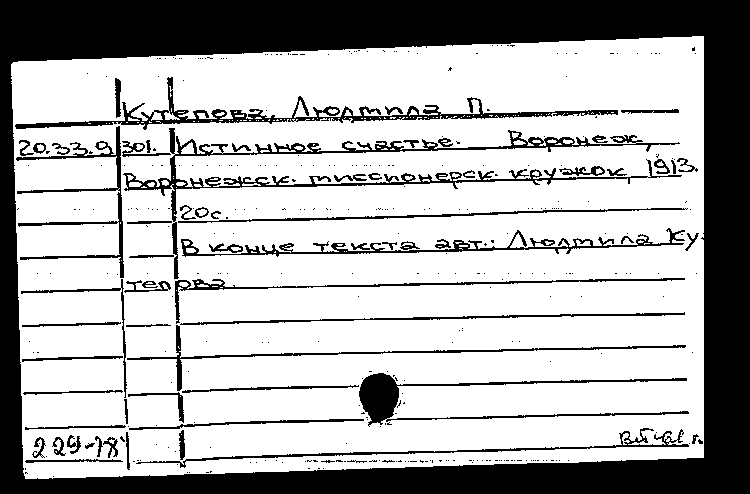 Кутепова, Людмила П.
20.33.9.301. Истинное счастье. Воронеж,
Воронежск. миссионерск. кружок, 1913.
20с.
В конце текста авт.: Людмила Ку-
тепова.
229-78